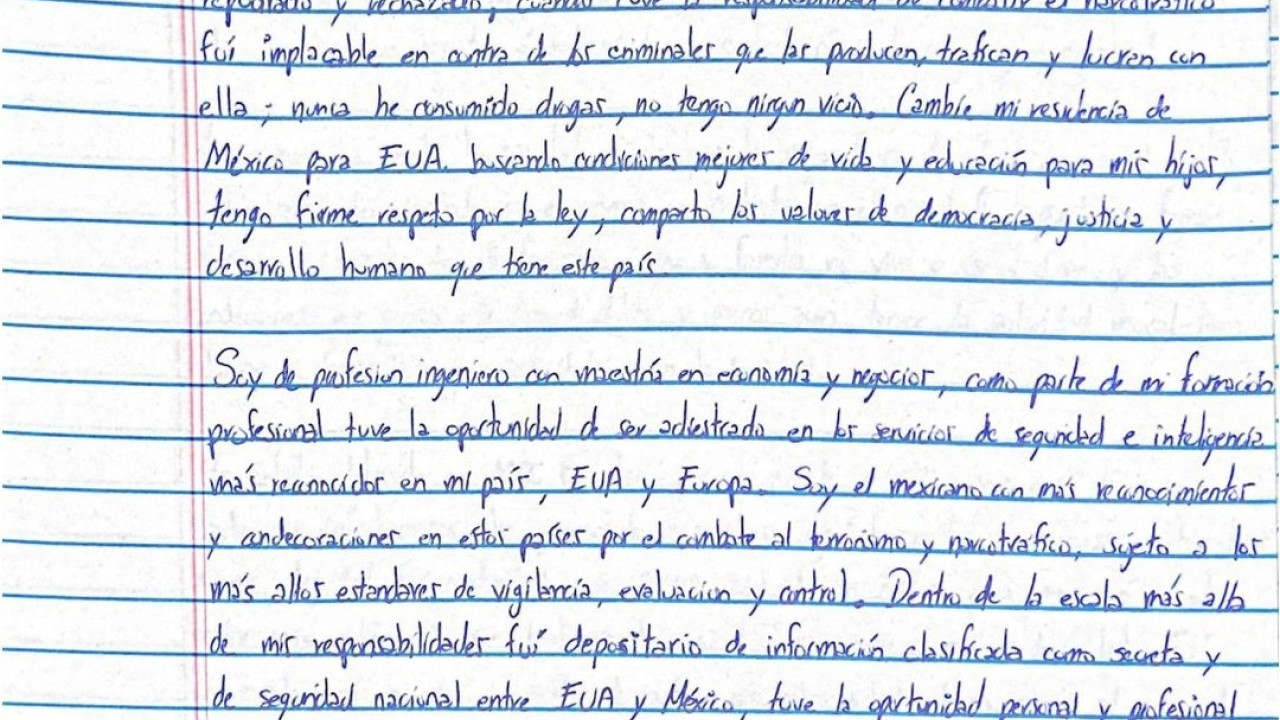 repudiado y rechazado, cuando tuve la responsabilidad de combatir el narcotráfico
fuí implacable en contra de los criminales que las producen, trafican y lucran con
ella; nunca he consumido drogas, no tengo ningun vicio. Cambie mi residencia de
México para EUA. buscando condiciones mejores de vida y educación para mis hijos,
tengo firme respeto por la ley, comparto los valores de democracia, justicia y
desarrollo humano que tiene este país.
Soy de profesion ingeniero con maestría en economía y negocios, como parte de mi formación
profesional tuve la oportunidad de ser adiestrado en los servicios de seguridad e inteligencia
más reconocidos en mi país, EUA y Europa. Soy el mexicano con más reconocimientos
y condecoraciones en estos países por el combate al terrorismo y narcotráfico, sujeto a los
más altos estandares de vigilancia, evaluacion y control. Dentro de la escala más alta
de mis responsabilidades fuí depositario de información clasificada como secreta y
de seguridad nacional entre EUA y México, tuve la oportunidad personal y profesional